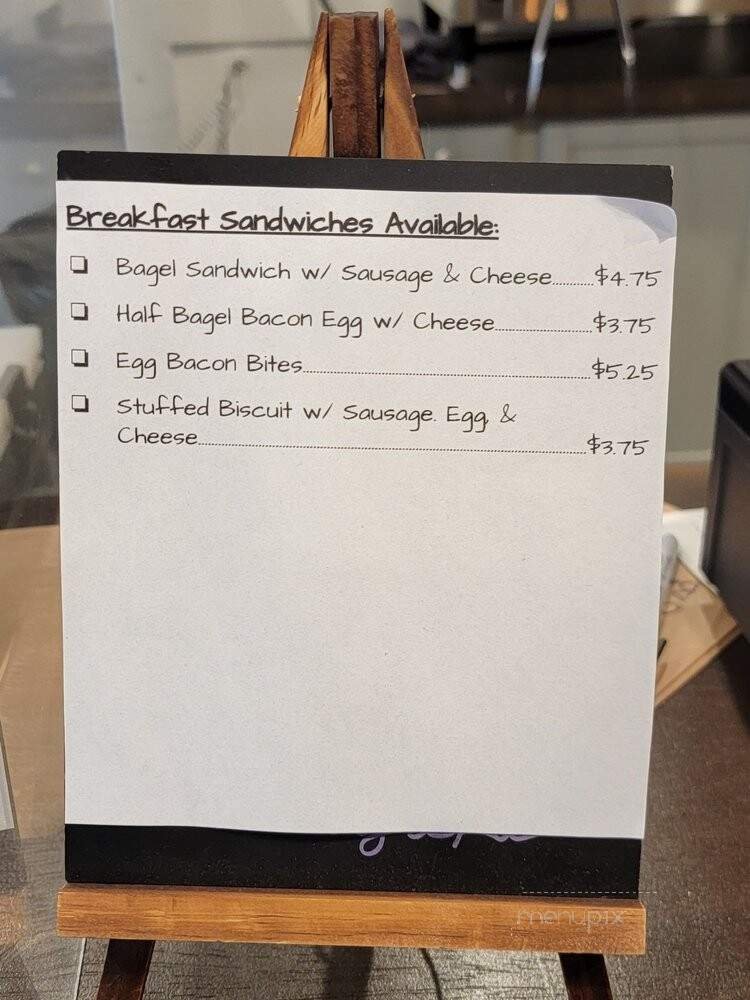 Breakfast Sandwiches Available:
❏ Bagel Sandwich w/ Sausage & Cheese..........$4.75
❏ Half Bagel Bacon Egg w/ Cheese..........$3.75
❏ Egg Bacon Bites..........$5.25
❏ Stuffed Biscuit w/ Sausage. Egg, &
Cheese..........$3.75
menupix